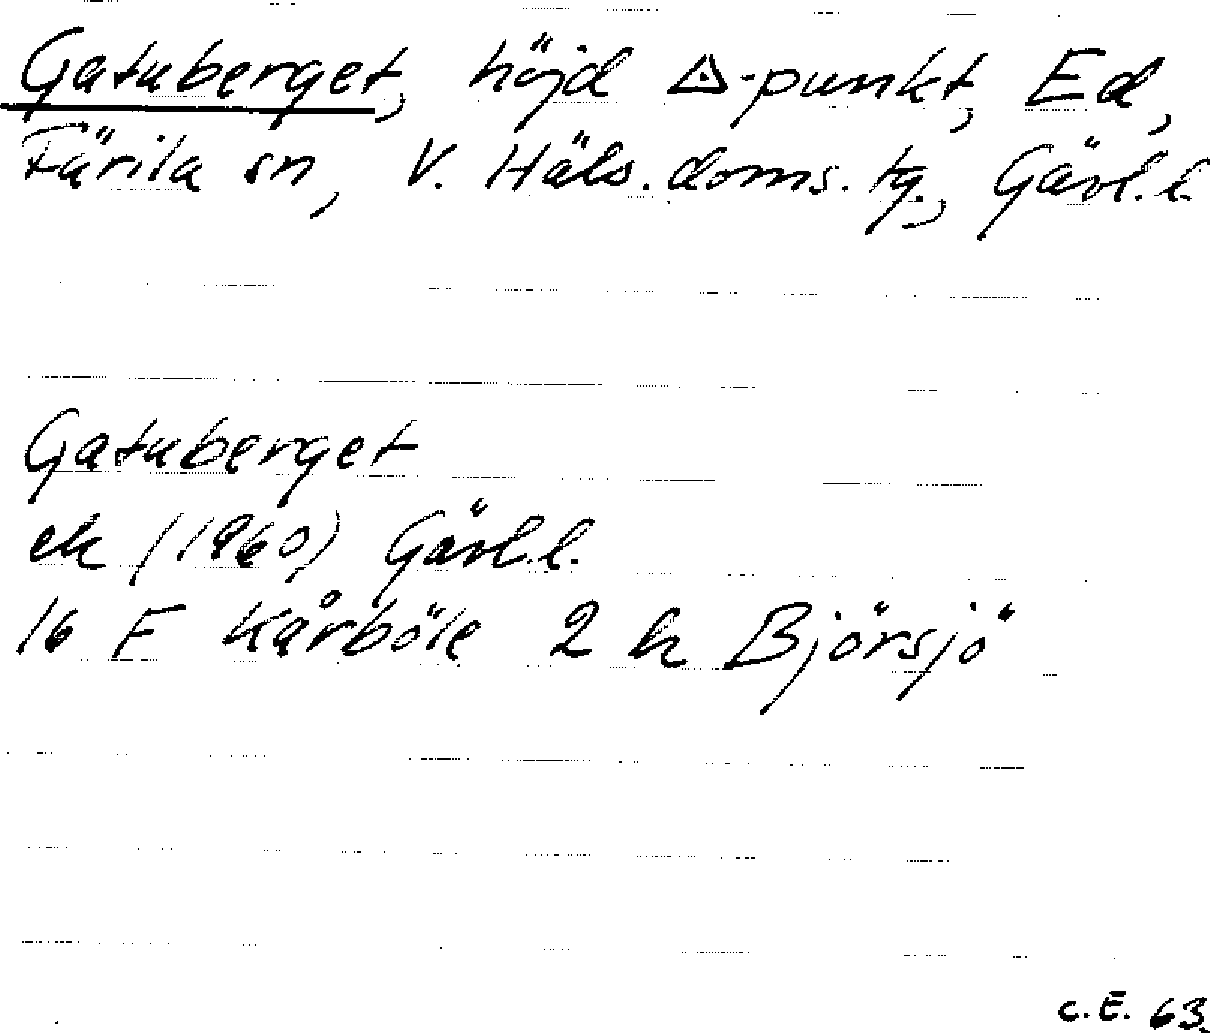 Gatuberget, höjd △-punkt, Ed,
Färila sn, V. Häls. doms. tg., Gävl.l.
Gatuberget
ek (1960) Gävl.l.
16 F Kårböle 2 h Björsjö
C.E. 63.